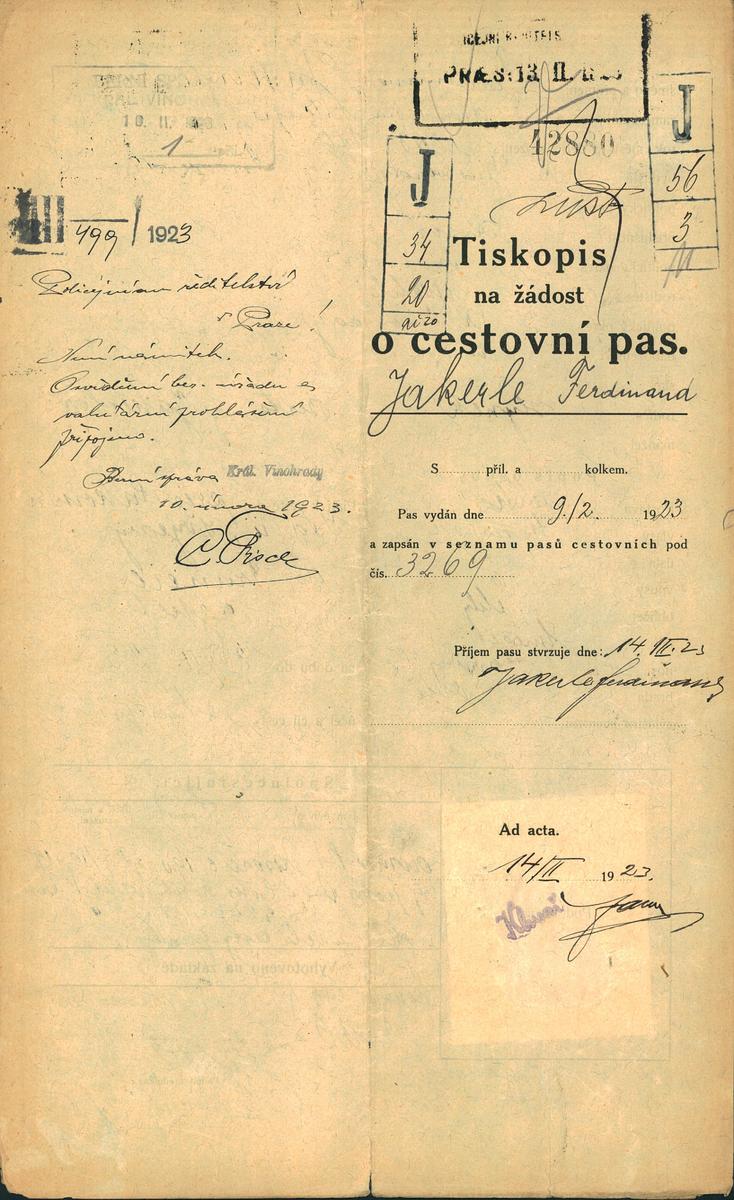 PRÆS: 13. II.
42880
J
34
20
J
56
3
VIII 499 / 1923
Policejnímu ředitelství
v Praze!
Není námitek.
Osvědčení ber. úřadu a
valutární prohlášení
připojeno.
správa Král. Vinohrady
10. února 1923.
Tiskopis
na žádost
o cestovní pas.
Jakerle Ferdinand
S příl. a kolkem.
Pas vydán dne 9./2. 1923
a zapsán v seznamu pasů cestovních pod
čís. 3269
Příjem pasu stvrzuje dne: 14. III. 23
Jakerle Ferdinand
Ad acta.
14/II 1923.